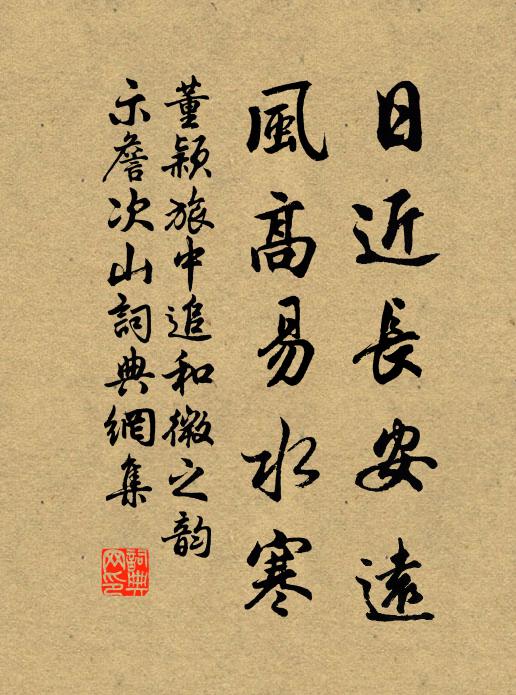 日近長安遠
風高易水寒
董颖旅中追和微之韵
示詹次山詞典網集
詞典网印